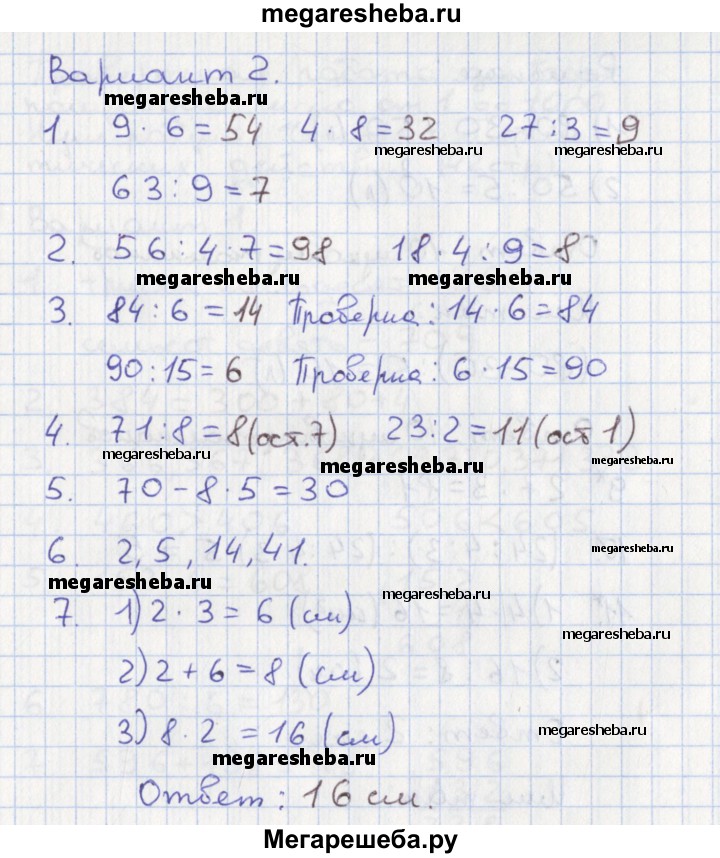 megaresheba.ru
Вариант 2.
megaresheba.ru
1. 9 · 6 = 54 4 · 8 = 32 27 : 3 = 9
megaresheba.ru megaresheba.ru
63 : 9 = 7
2. 56 : 4 · 7 = 98 18 · 4 : 9 = 8
megaresheba.ru megaresheba.ru
3. 84 : 6 = 14 Проверка: 14 · 6 = 84
90 : 15 = 6 Проверка: 6 · 15 = 90
4. 71 : 8 = 8 (ост. 7) 23 : 2 = 11 (ост 1)
megaresheba.ru megaresheba.ru megaresheba.ru
5. 70 - 8 · 5 = 30
6. 2, 5, 14, 41.
megaresheba.ru megaresheba.ru
7. 1) 2 · 3 = 6 (см)
megaresheba.ru
2) 2 + 6 = 8 (см)
3) 8 · 2 = 16 (см)
megaresheba.ru megaresheba.ru
Ответ: 16 см.
Мегарешеба.ру